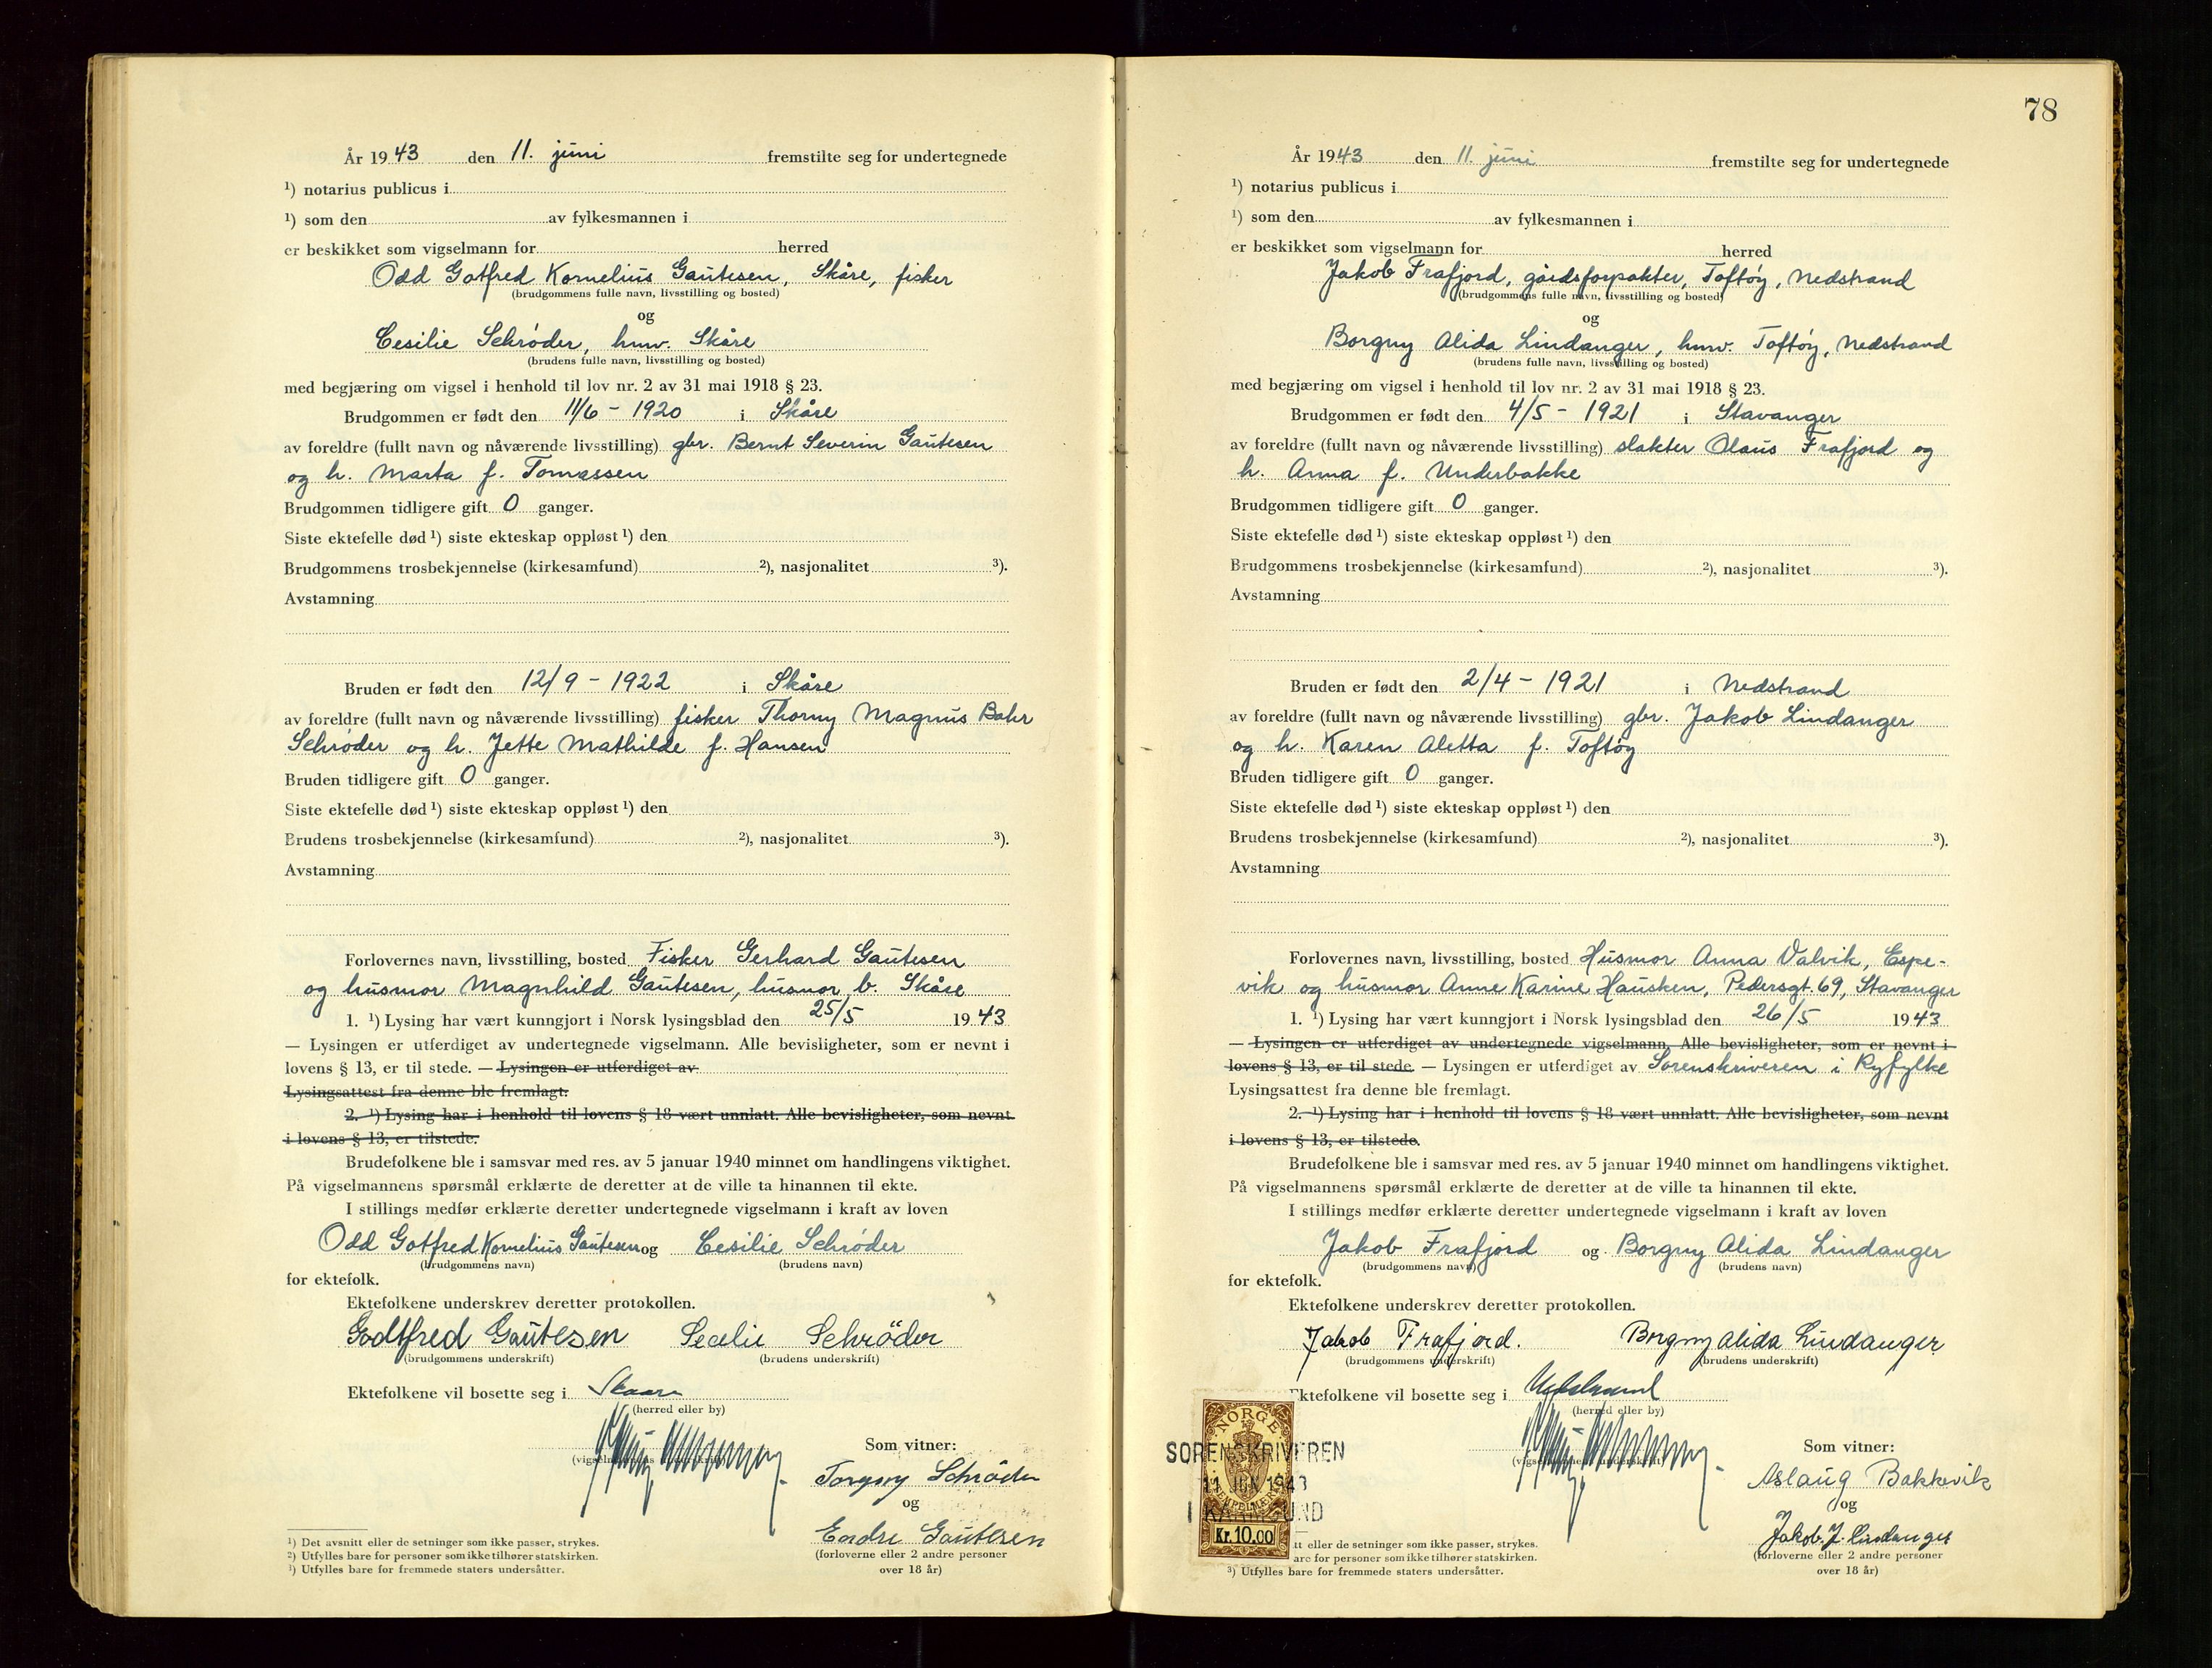 År 1943 den 11. juni fremstilte seg for undertegnede
¹) notarius publicus i
¹) som den av fylkesmannen i
er beskikket som vigselmann for herred
Odd Gotfred Kornelius Gautesen, Skåre, fisker
(brudgommens fulle navn, livsstilling og bosted)
og
Cesilie Schrøder, hnv. Skåre
(brudens fulle navn, livsstilling og bosted)
med begjæring om vigsel i henhold til lov nr. 2 av 31 mai 1918 § 23.
Brudgommen er født den 11/6 - 1920 i Skåre
av foreldre (fullt navn og nåværende livsstilling) gbr. Bernt Severin Gautesen
og h. Marta f. Tomassen
Brudgommen tidligere gift 0 ganger.
Siste ektefelle død ¹) siste ekteskap oppløst ¹) den
Brudgommens trosbekjennelse (kirkesamfund) ²), nasjonalitet ³).
Avstamning
Bruden er født den 12/9 - 1922 i Skåre
av foreldre (fullt navn og nåværende livsstilling) fisker Thorny Magnus Bahr
Schrøder og h. Jette Mathilde f. Hansen
Bruden tidligere gift 0 ganger.
Siste ektefelle død ¹) siste ekteskap oppløst ¹) den
Brudens trosbekjennelse (kirkesamfund) ²), nasjonalitet ³).
Avstamning
Forlovernes navn, livsstilling, bosted Fisker Gerhard Gautesen
og husmor Magnhild Gautesen, husmor, b. Skåre
1. ¹) Lysing har vært kunngjort i Norsk lysingsblad den 25/5 1943
— Lysingen er utferdiget av undertegnede vigselmann. Alle bevisligheter, som er nevnt i
lovens § 13, er til stede. — Lysingen er utferdiget av
Lysingsattest fra denne ble fremlagt.
2. ¹) Lysing har i henhold til lovens § 18 vært unnlatt. Alle bevisligheter, som nevnt
i lovens § 13, er tilstede.
Brudefolkene ble i samsvar med res. av 5 januar 1940 minnet om handlingens viktighet.
På vigselmannens spørsmål erklærte de deretter at de ville ta hinannen til ekte.
I stillings medfør erklærte deretter undertegnede vigselmann i kraft av loven
Odd Gotfred Kornelius Gautesen og Cesilie Schrøder
(brudgommens navn) (brudens navn)
for ektefolk.
Ektefolkene underskrev deretter protokollen.
Godtfred Gautesen Secelie Schröder
(brudgommens underskrift) (brudens underskrift)
Ektefolkene vil bosette seg i Skaare
(herred eller by)
Som vitner:
Torgny Schrøder
og
Endre Gautesen
(forloverne eller 2 andre personer
over 18 år)
¹) Det avsnitt eller de setninger som ikke passer, strykes.
²) Utfylles bare for personer som ikke tilhører statskirken.
³) Utfylles bare for fremmede staters undersåtter.
78
År 1943 den 11. juni fremstilte seg for undertegnede
¹) notarius publicus i
¹) som den av fylkesmannen i
er beskikket som vigselmann for herred
Jakob Frafjord, gårdsforpakter, Toftøy, Nedstrand
(brudgommens fulle navn, livsstilling og bosted)
og
Borgny Alida Lindanger, hnv. Toftøy, Nedstrand
(brudens fulle navn, livsstilling og bosted)
med begjæring om vigsel i henhold til lov nr. 2 av 31 mai 1918 § 23.
Brudgommen er født den 4/5 - 1921 i Stavanger
av foreldre (fullt navn og nåværende livsstilling) slakter Olaus Frafjord og
h. Anna f. Underbakke
Brudgommen tidligere gift 0 ganger.
Siste ektefelle død ¹) siste ekteskap oppløst ¹) den
Brudgommens trosbekjennelse (kirkesamfund) ²), nasjonalitet ³).
Avstamning
Bruden er født den 2/4 - 1921 i Nedstrand
av foreldre (fullt navn og nåværende livsstilling) gbr. Jakob Lindanger
og h. Karen Aletta f. Toftøy
Bruden tidligere gift 0 ganger.
Siste ektefelle død ¹) siste ekteskap oppløst ¹) den
Brudens trosbekjennelse (kirkesamfund) ²), nasjonalitet ³).
Avstamning
Forlovernes navn, livsstilling, bosted Husmor Anna Valvik, Espe-
vik og husmor Anne Karine Hausken, Pedersgt. 69, Stavanger
1. ¹) Lysing har vært kunngjort i Norsk lysingsblad den 26/5 1943
— Lysingen er utferdiget av undertegnede vigselmann, Alle bevisligheter, som er nevnt i
lovens § 13, er til stede. — Lysingen er utferdiget av Sorenskriveren i Ryfylke
Lysingsattest fra denne ble fremlagt.
2. ¹) Lysing har i henhold til lovens § 18 vært unnlatt. Alle bevisligheter, som nevnt
i lovens § 13, er tilstede.
Brudefolkene ble i samsvar med res. av 5 januar 1940 minnet om handlingens viktighet.
På vigselmannens spørsmål erklærte de deretter at de ville ta hinannen til ekte.
I stillings medfør erklærte deretter undertegnede vigselmann i kraft av loven
Jakob Frafjord og Borgny Alida Lindanger
(brudgommens navn) (brudens navn)
for ektefolk.
Ektefolkene underskrev deretter protokollen.
Jakob Frafjord. Borgny Alida Lindanger
(brudgommens underskrift) (brudens underskrift)
Ektefolkene vil bosette seg i Nedstrand
(herred eller by)
NORGE
SORENSKRIVEREN
11 JUN 1943
I KARMSUND
Kr. 10.00
Som vitner:
Aslaug Bakkevik
og
Jakob J. Lindanger
(forloverne eller 2 andre personer
over 18 år)
tt eller de setninger som ikke passer, strykes.
are for personer som ikke tilhører statskirken.
³) Utfylles bare for fremmede staters undersåtter.